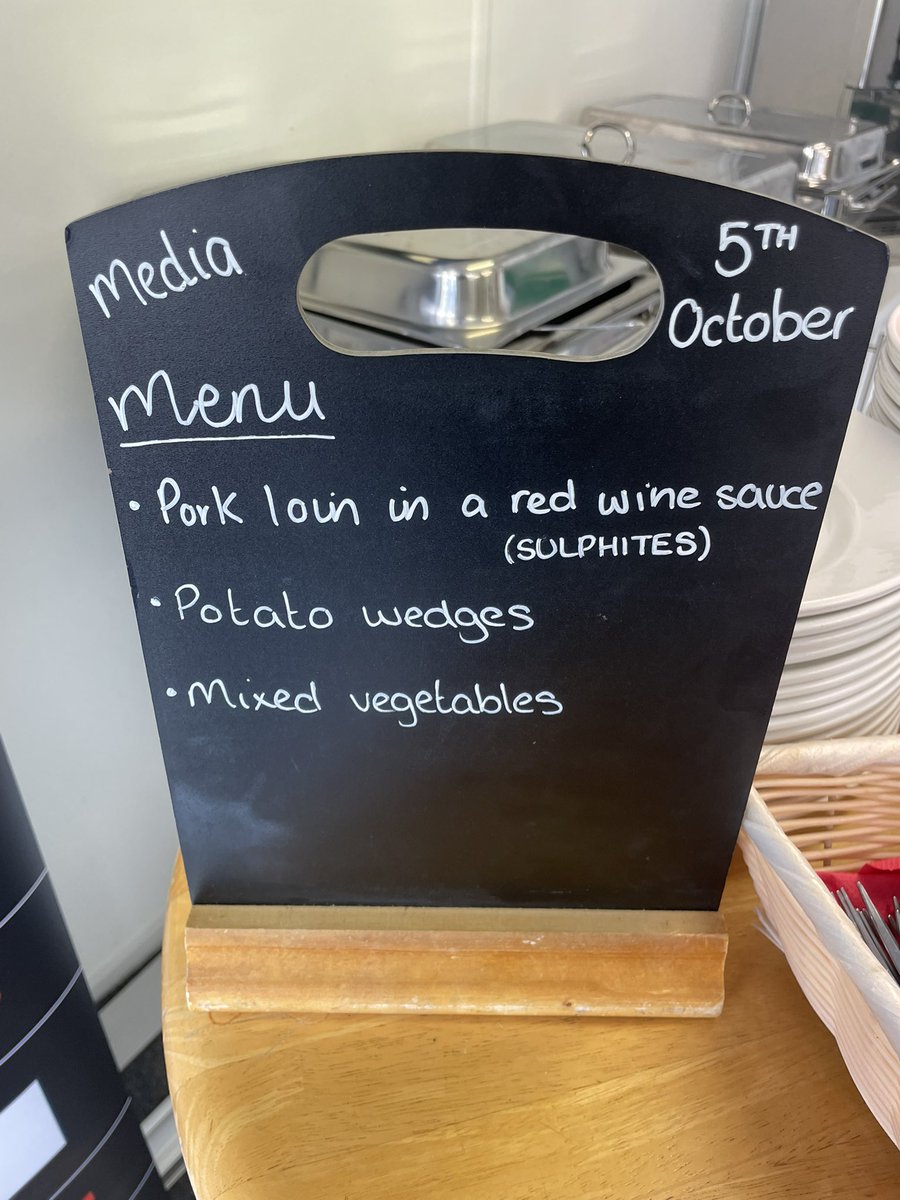 Media
5TH
October
Menu
• Pork loin in a red wine sauce
(SULPHITES)
• Potato wedges
• Mixed vegetables